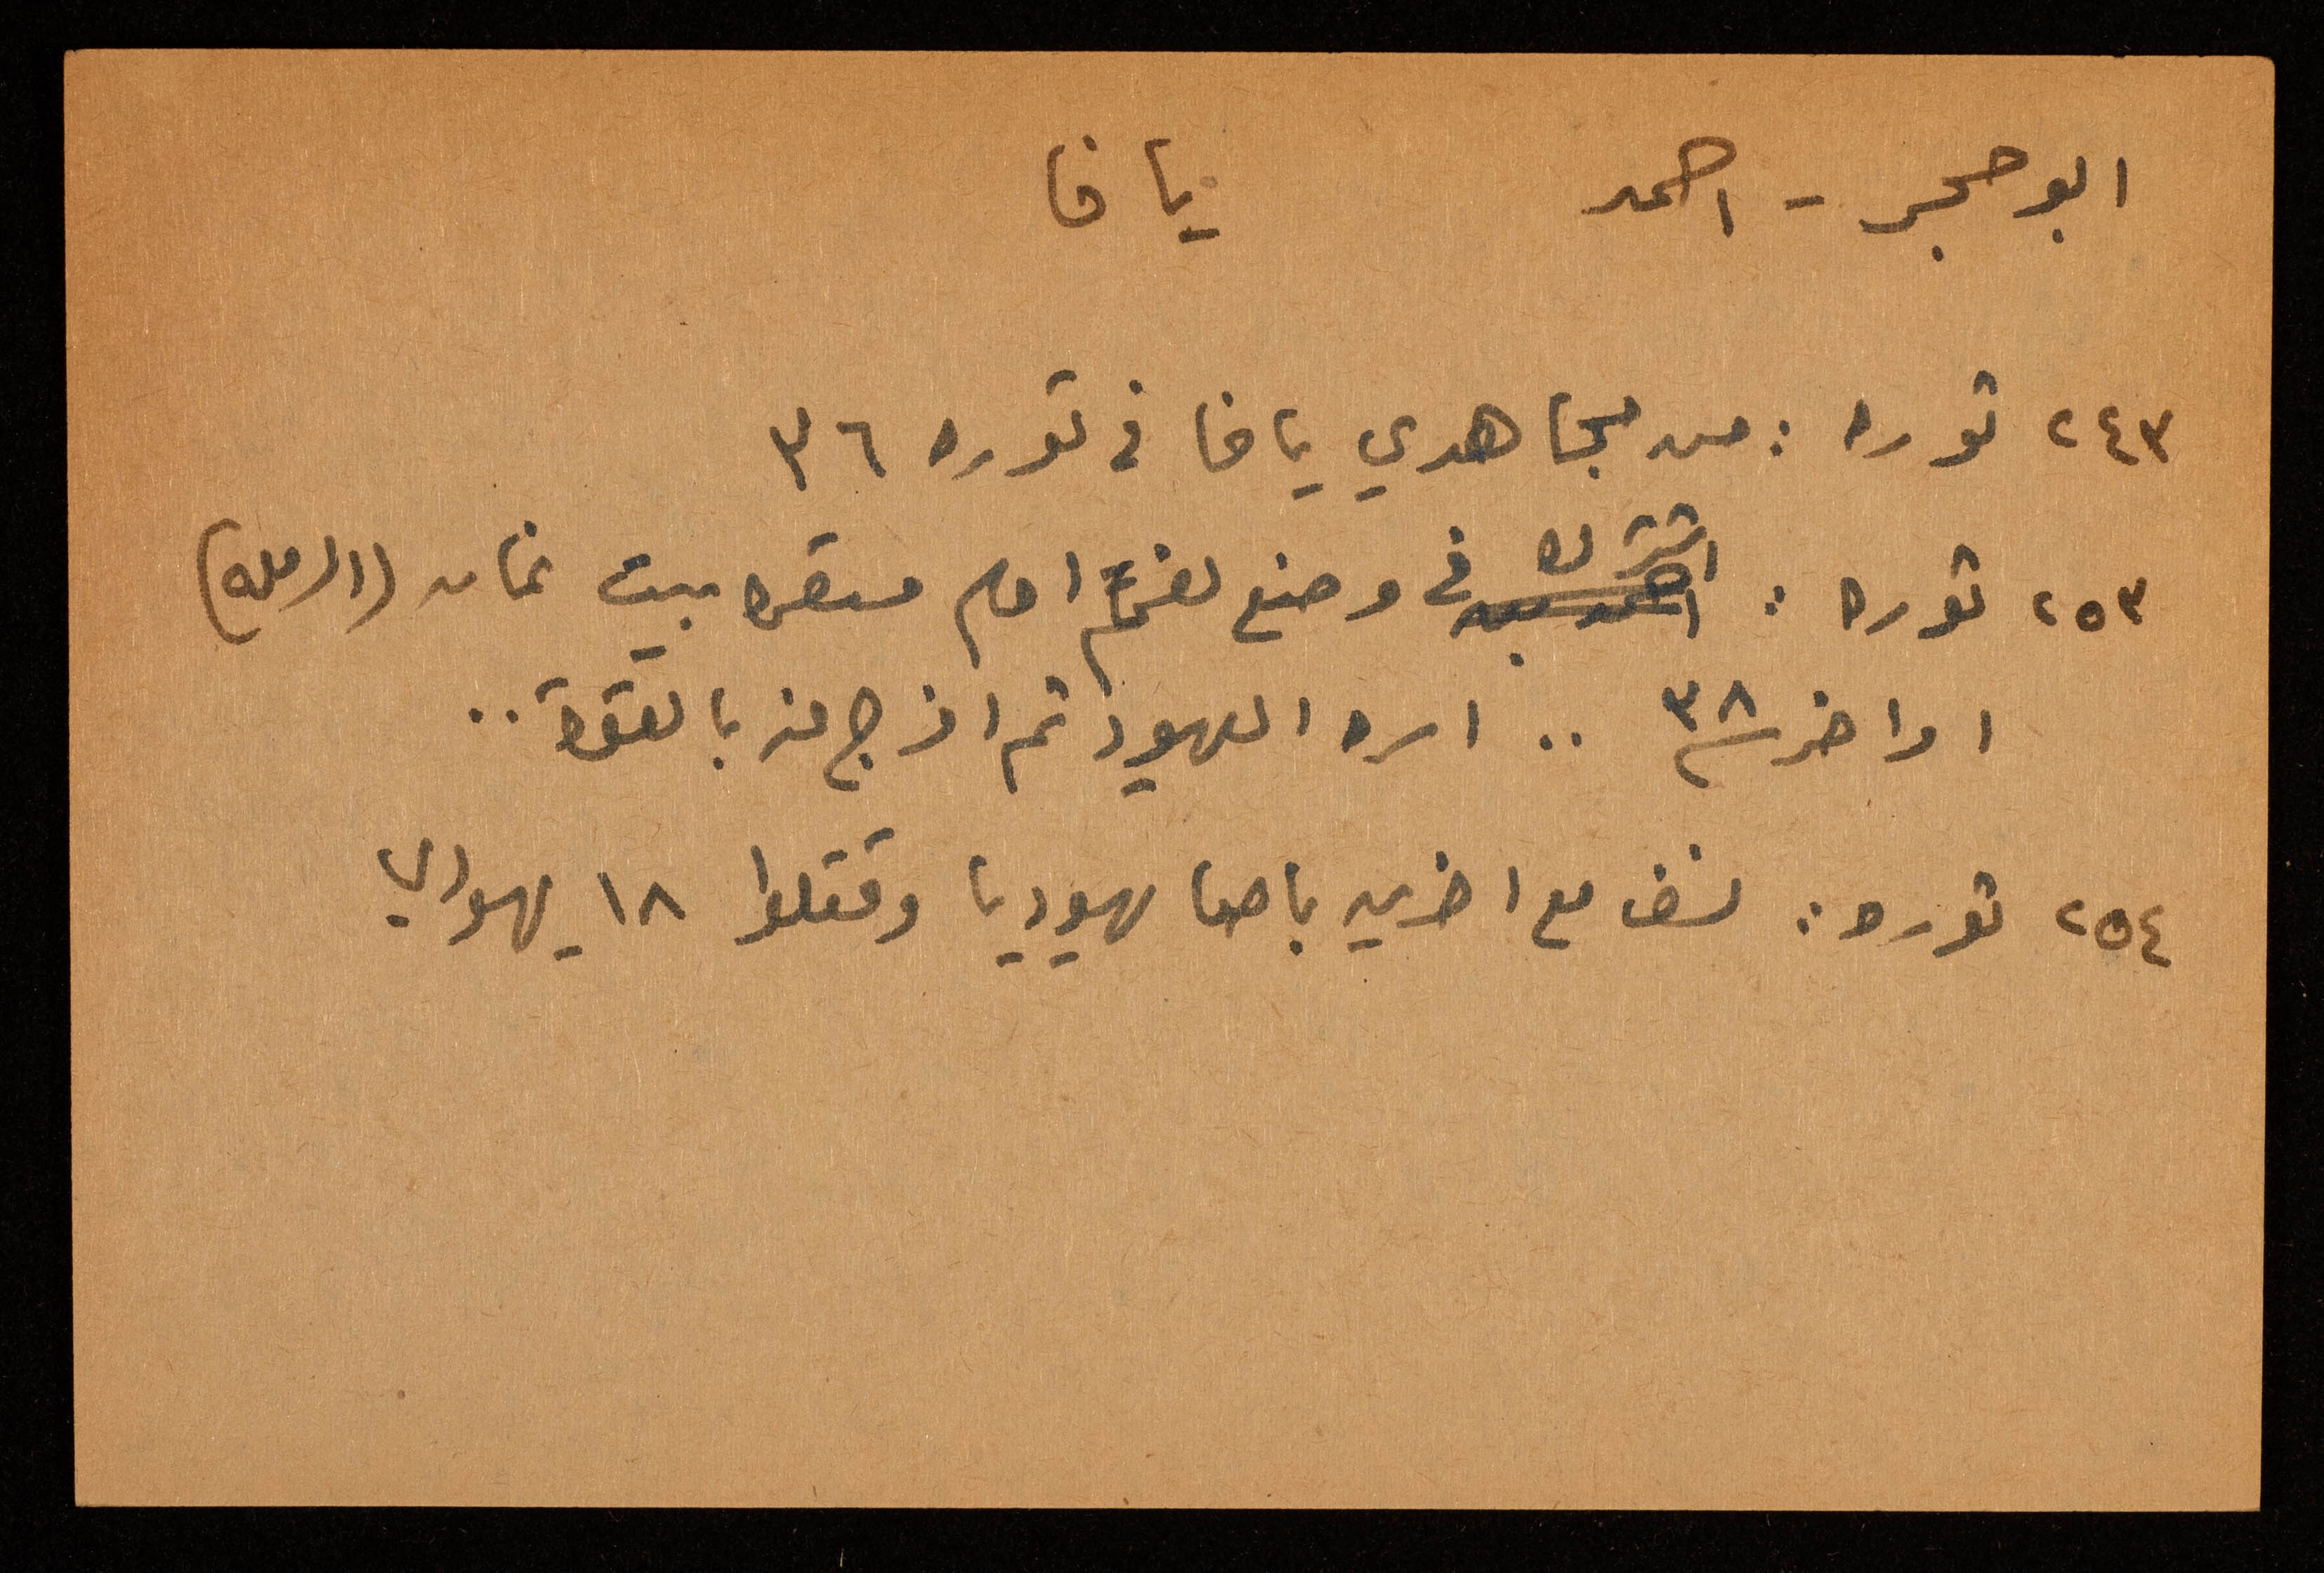 ابو حجر - احمد يافا
٢٤٣ ثوره : من مجاهدي يافا في ثوره ٣٦
٢٥٣ ثوره : اشترك في وضع لغم امام مستعمره بيت نمان (الرملة)
اواخر سنة ٣٨ .. اسره اليهود ثم افرج عنه بالقوة ..
٢٥٤ ثوره : نسف مع اخرين باصا يهوديا وقتلوا ١٨ يهوديا